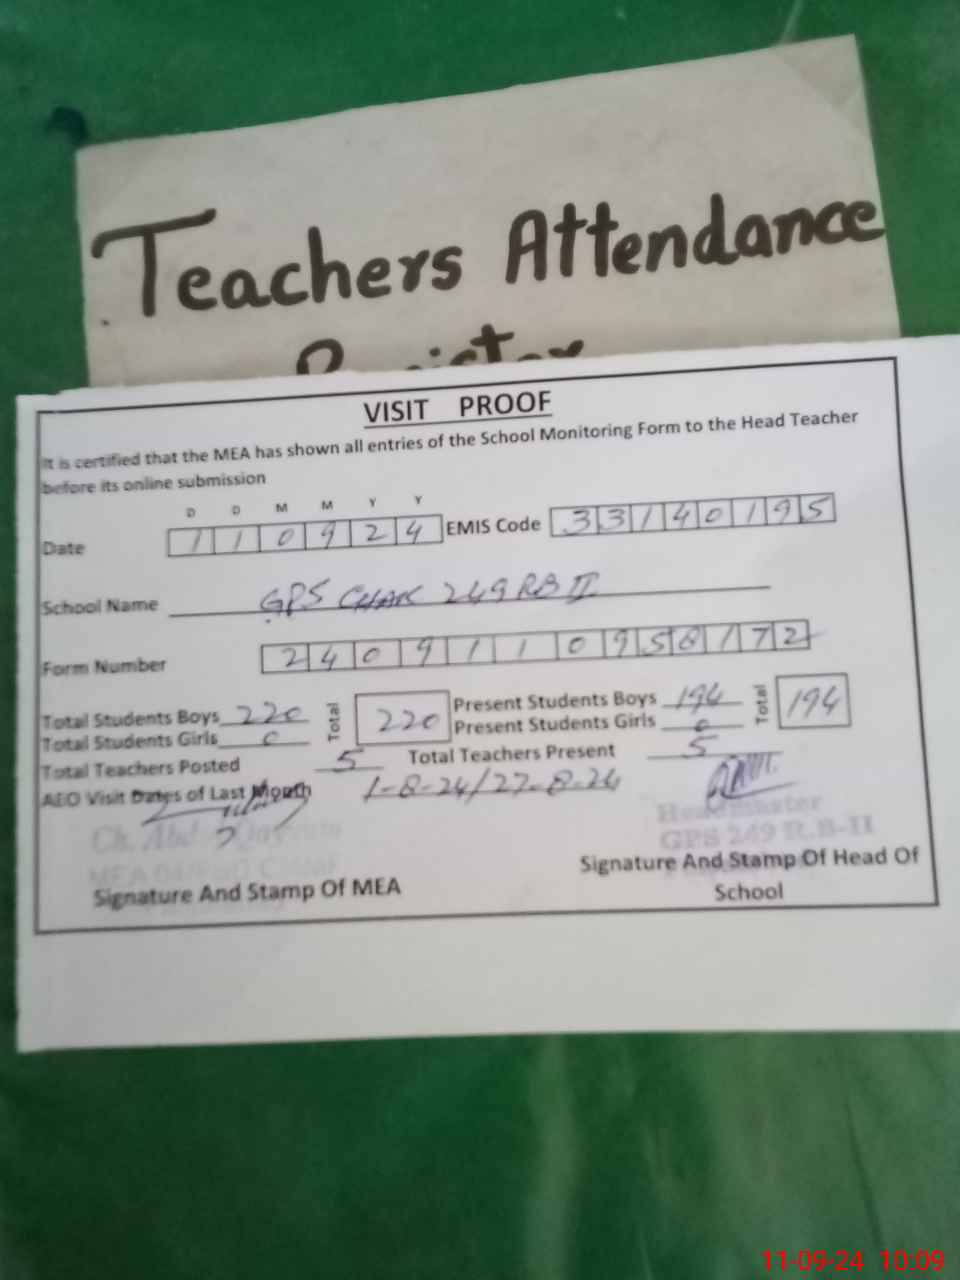 Teachers Attendance
Register
VISIT PROOF
It is certified that the MEA has shown all entries of the School Monitoring Form to the Head Teacher
before its online submission
D D M M Y Y
Date 1 1 0 9 2 4 EMIS Code 3 3 1 4 0 1 9 5
School Name GPS CHAK 249 RB II
Form Number 2 4 0 9 1 1 0 9 5 8 1 7 2
Total Students Boys 220 Total 220 Present Students Boys 194 Total 194
Total Students Girls 0 Present Students Girls 0
Total Teachers Posted 5 Total Teachers Present 5
AEO Visit Dates of Last Month 1-8-24/27-8-24
Ch. Abdul Qayyum
Headmaster
GPS 249 R.B-II
Signature And Stamp Of MEA
Signature And Stamp Of Head Of
School
11-09-24 10:09